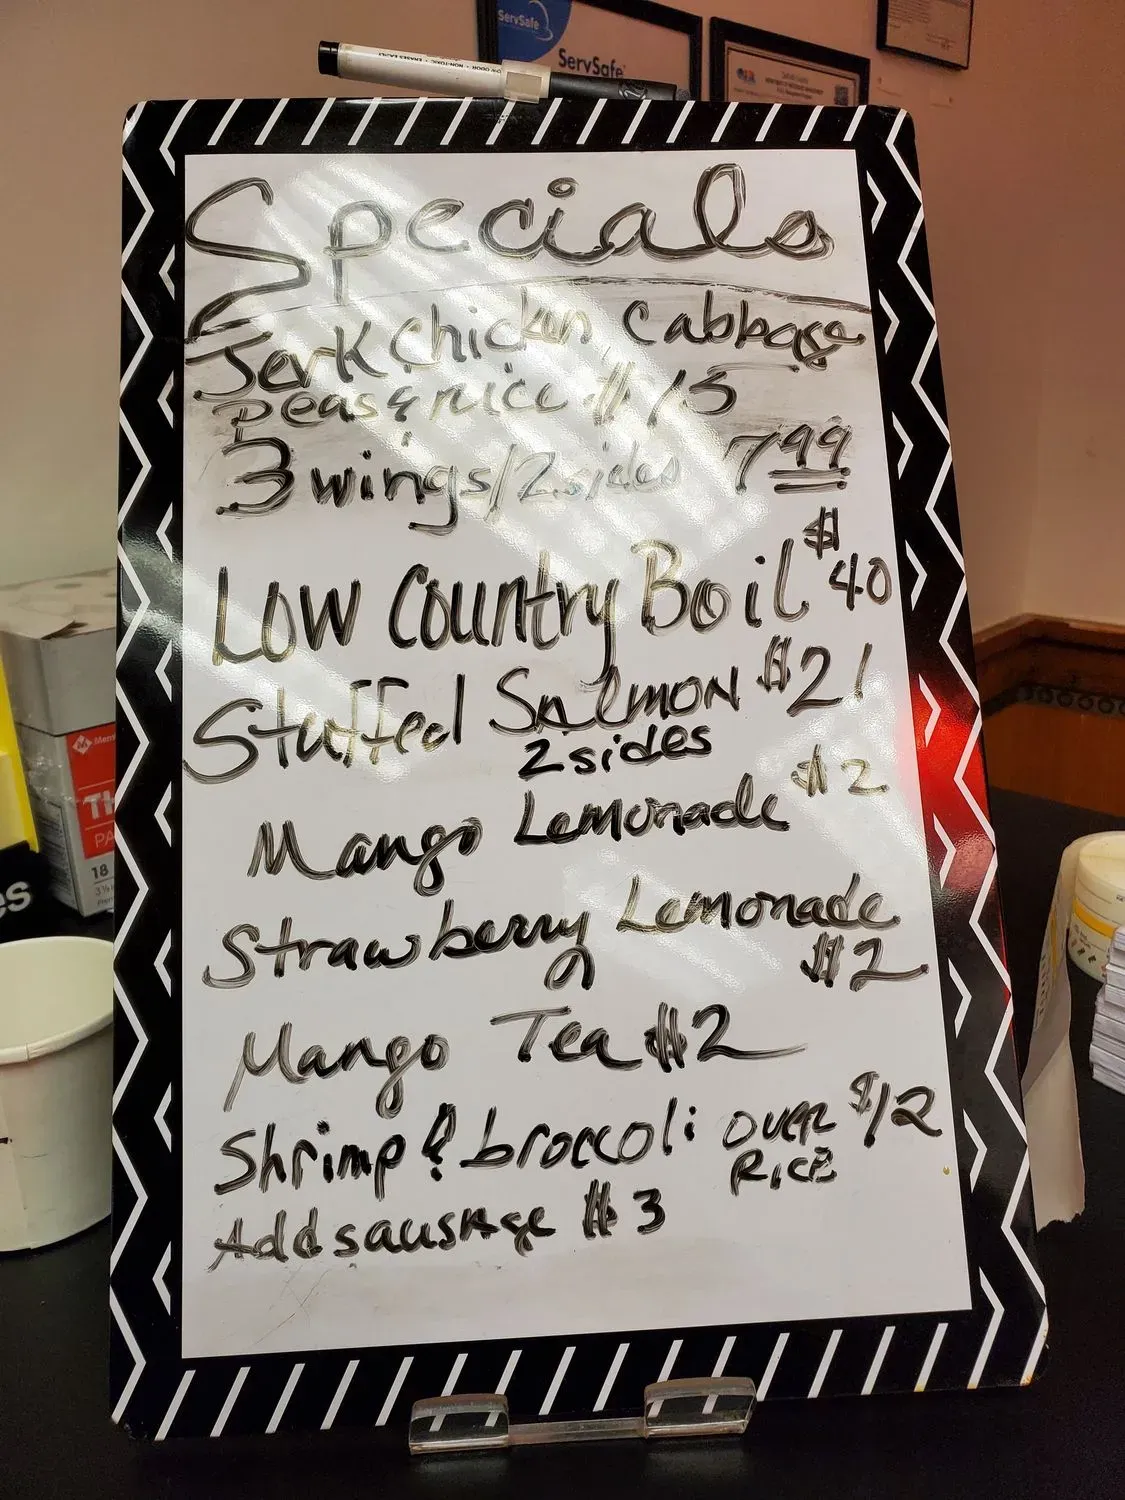 NON-TOXIC
ServSafe
ServSafe
Specials
Jerk Chicken, Cabbage
peas & rice $15
3 wings/2 sides 7.99
Low Country Boil $40
Stuffed Salmon $21
2 sides
Mango Lemonade $2
Strawberry Lemonade
$2
Mango Tea $2
Shrimp & broccoli over $12
Rice
Add sausage $3
TH
PA
18
es